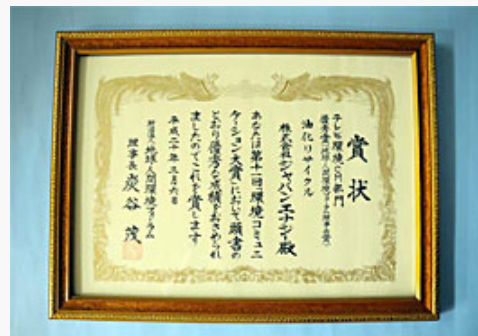 賞状
テレビ環境CM部門
優秀賞(地球・人間環境フォーラム理事長賞)
油化リサイクル
株式会社ジャパンエナジー殿
あなたは第十一回「環境コミュニ
ケーション大賞」において頭書の
とおり優秀な成績をおさめられ
ましたのでこれを賞します
平成二十年三月六日
財団法人地球・人間環境フォーラム
理事長 炭谷 茂